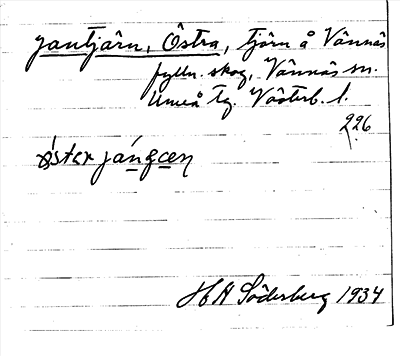 Jantjärn, Östra, tjärn å Vännäs
fylln. skog, Vännäs sn.
Umeå tg. Västerb. l.
226
H A Söderberg 1934